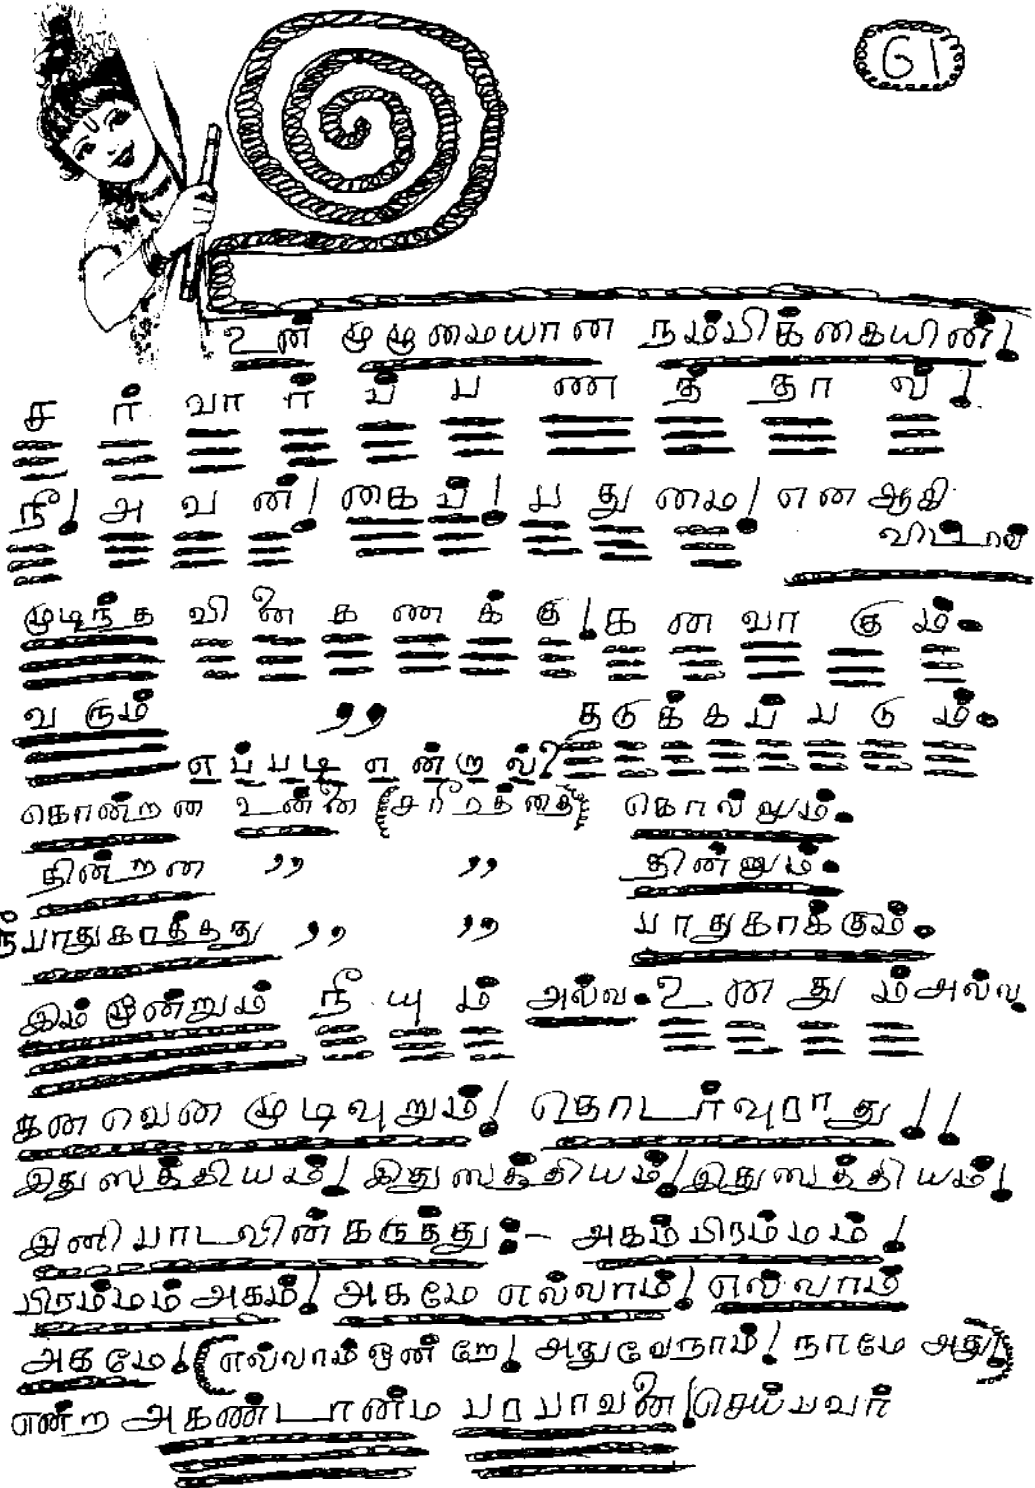 61
உன் முழுமையான நம்பிக்கையின்!
சர்வார்ப்பணத்தாவ்!
நீ! அவன்! கைப்! பதுமை! என ஆகி
விட்டால்
முடிந்த வினைகணக்கு! கனவாகும்.
வரும் ,, தடுக்கப்படும்.
எப்படி என்றால்?
கொன்றன உன்னை (சரீரத்தை) கொல்லும்.
தின்றன ,, ,, தின்னும்.
பாதுகாத்தது ,, ,, பாதுகாக்கும்.
இம் மூன்றும் நீயும் அல்ல. உனதும் அல்ல
கனவென முடிவுறும்! தொடர்வுராது!!
இது ஸத்தியம்! இது ஸத்தியம்! இது ஸத்தியம்!
இனி பாடலின் கருத்து:- அகம் பிரம்மம்!
பிரம்மம் அகம்! அகமே எல்லாம்! எல்லாம்
அகமே! (எல்லாம் ஒன்றே! அதுவேநாம்! நாமே அது!)
என்ற அகண்டான்ம பரபாவனை! செய்பவர்